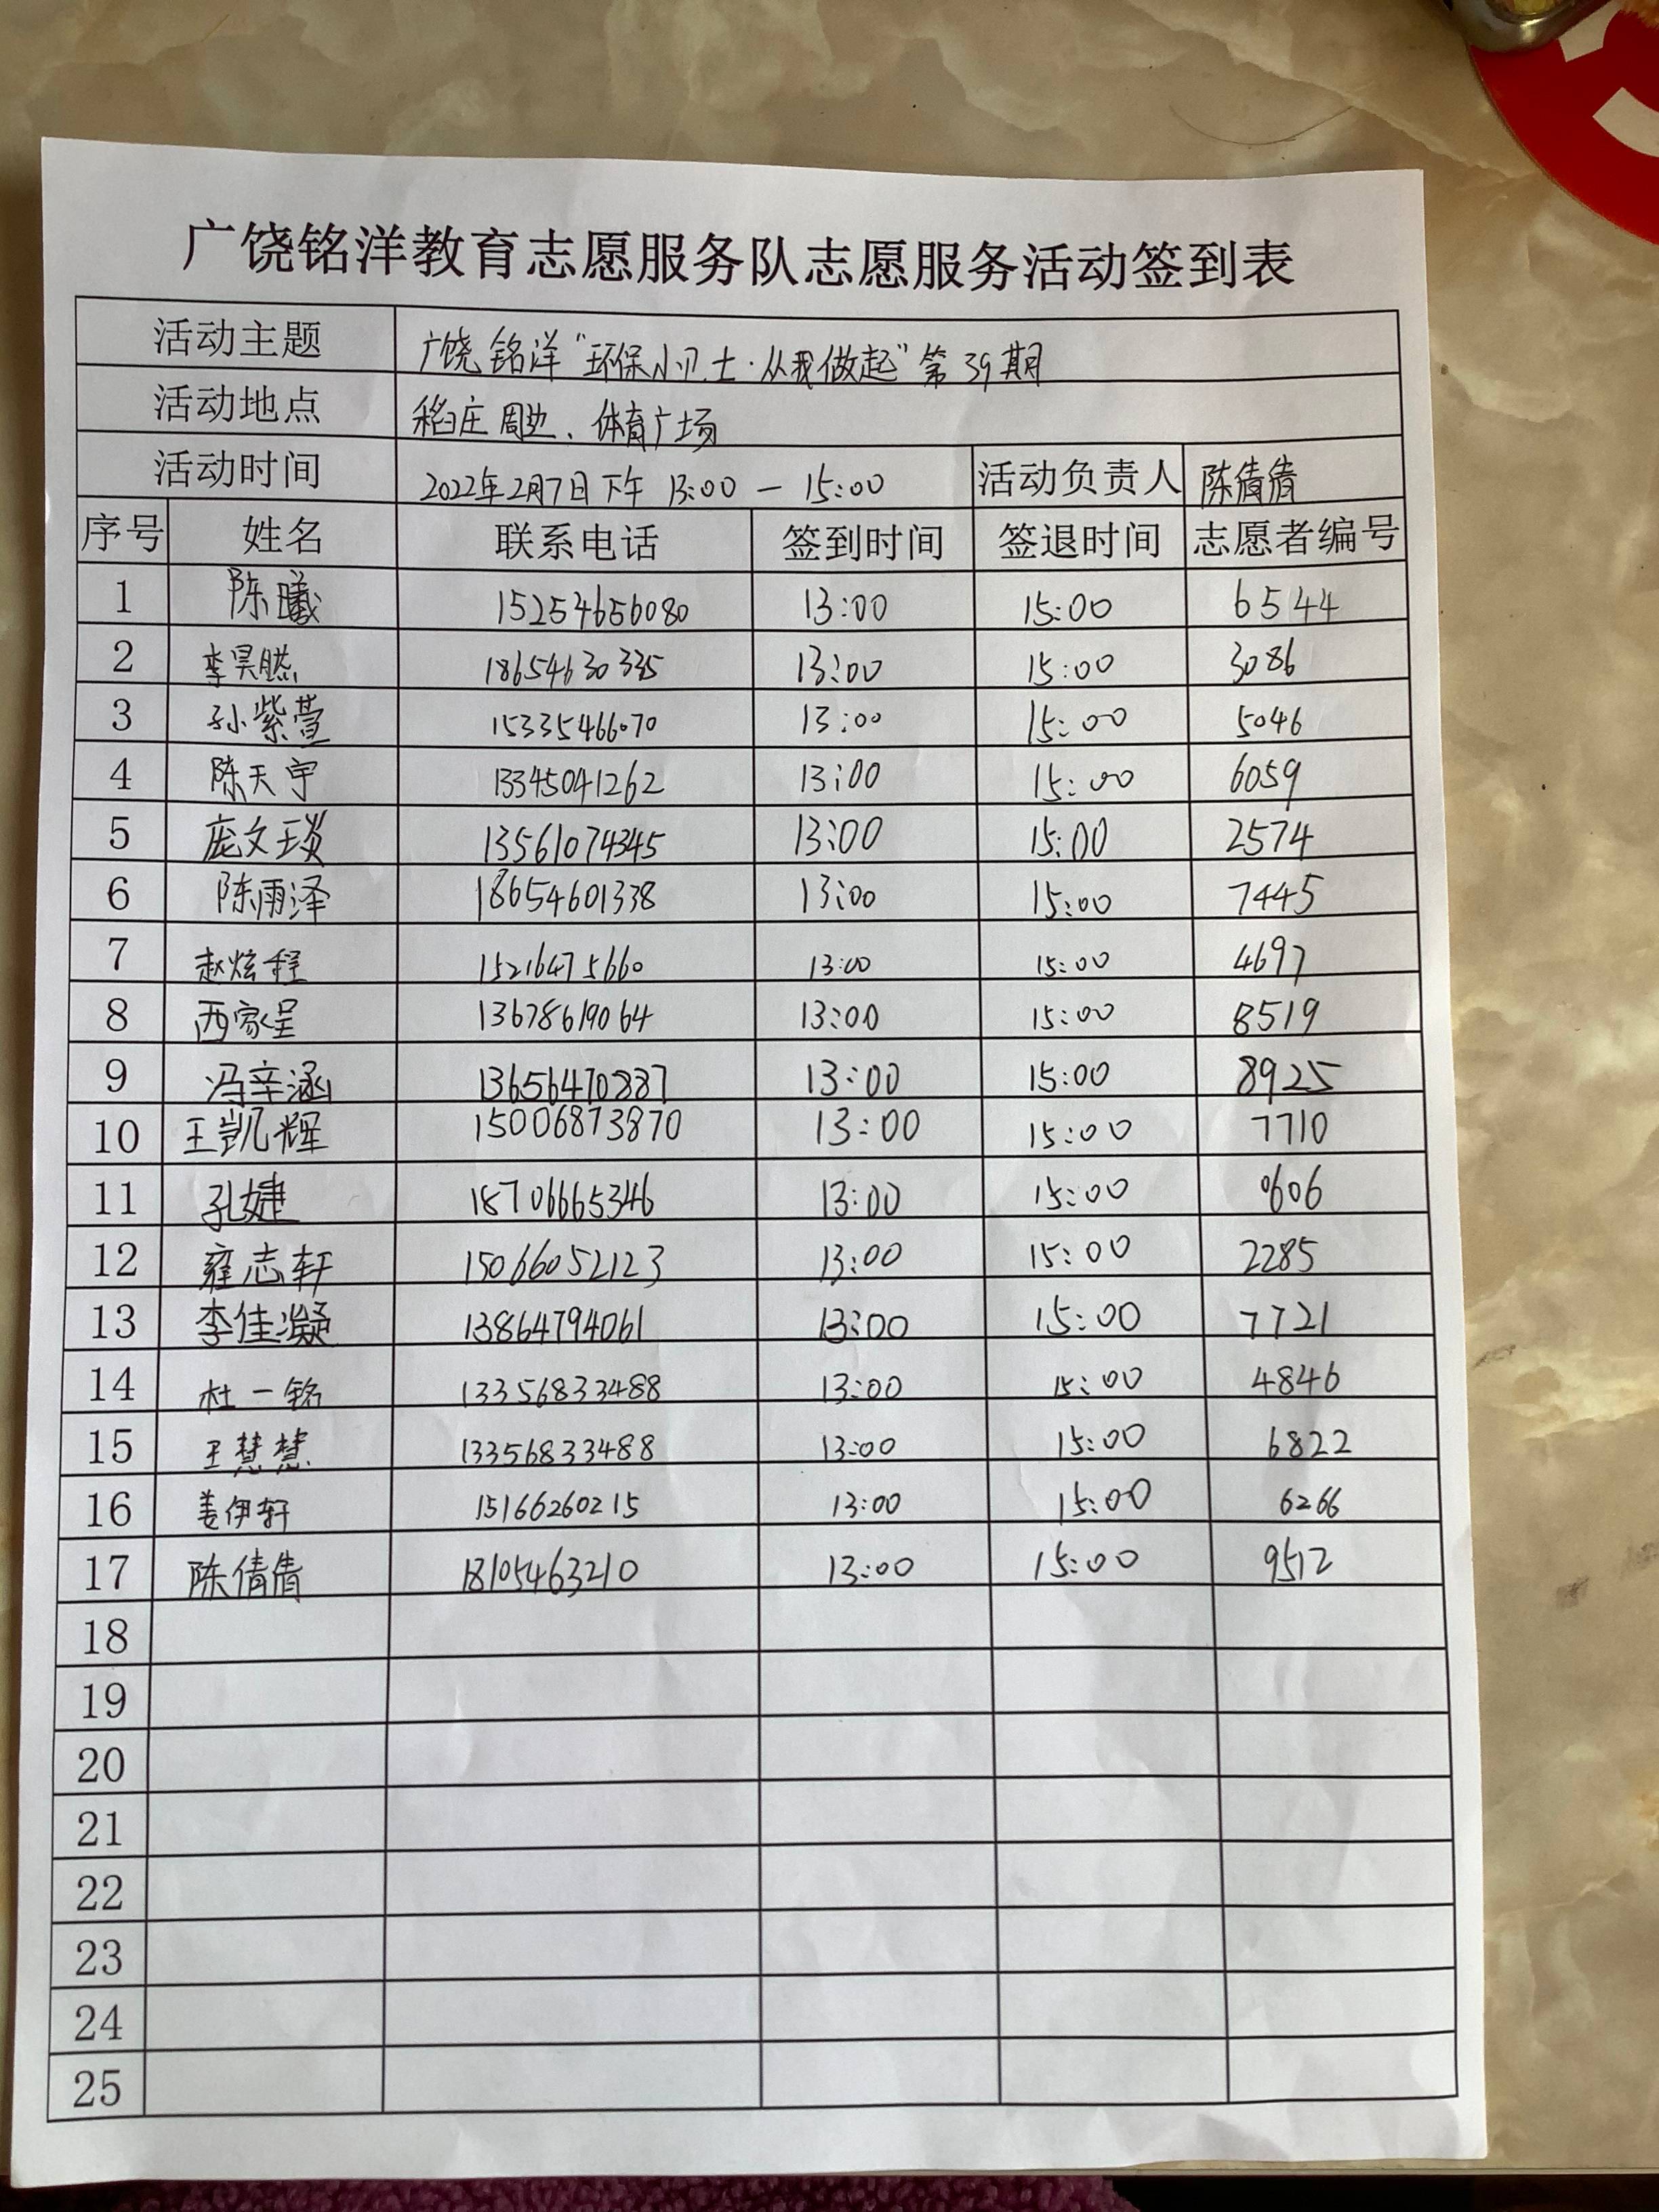 广饶铭洋教育志愿服务队志愿服务活动签到表
活动主题 广饶铭洋“环保小卫士·从我做起”第39期
活动地点 稻庄周边、体育广场
活动时间 2022年2月7日下午 13:00 — 15:00 活动负责人 陈倩倩
序号 姓名 联系电话 签到时间 签退时间 志愿者编号
1 陈曦 15254656080 13:00 15:00 6544
2 李昊燃 18654630335 13:00 15:00 3086
3 孙紫萱 15335466070 13:00 15:00 5046
4 陈天宇 13345041262 13:00 15:00 6059
5 庞文琰 13561074345 13:00 15:00 2574
6 陈雨泽 18654601338 13:00 15:00 7445
7 赵炫程 15216475660 13:00 15:00 4697
8 西家呈 13678619064 13:00 15:00 8519
9 冯辛涵 13656470887 13:00 15:00 8925
10 王凯辉 15006873870 13:00 15:00 7710
11 孔婕 18706665346 13:00 15:00 0606
12 雍志轩 15066052123 13:00 15:00 2285
13 李佳凝 13864794061 13:00 15:00 7721
14 杜一铭 13356833488 13:00 15:00 4846
15 王慧慧 13356833488 13:00 15:00 6822
16 姜伊轩 15166260215 13:00 15:00 6266
17 陈倩倩 18105463210 13:00 15:00 9512
18
19
20
21
22
23
24
25